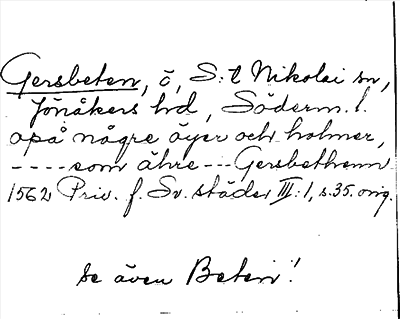 Gersbeten, ö, S:t Nikolai sn,
Jönåkers hd, Söderm. l.
opå någre öyer och holmer,
----som åhre---Gersbethenn
1562 Priv. f. Sv. städer III:1, s.35. orig.
se även Beten!